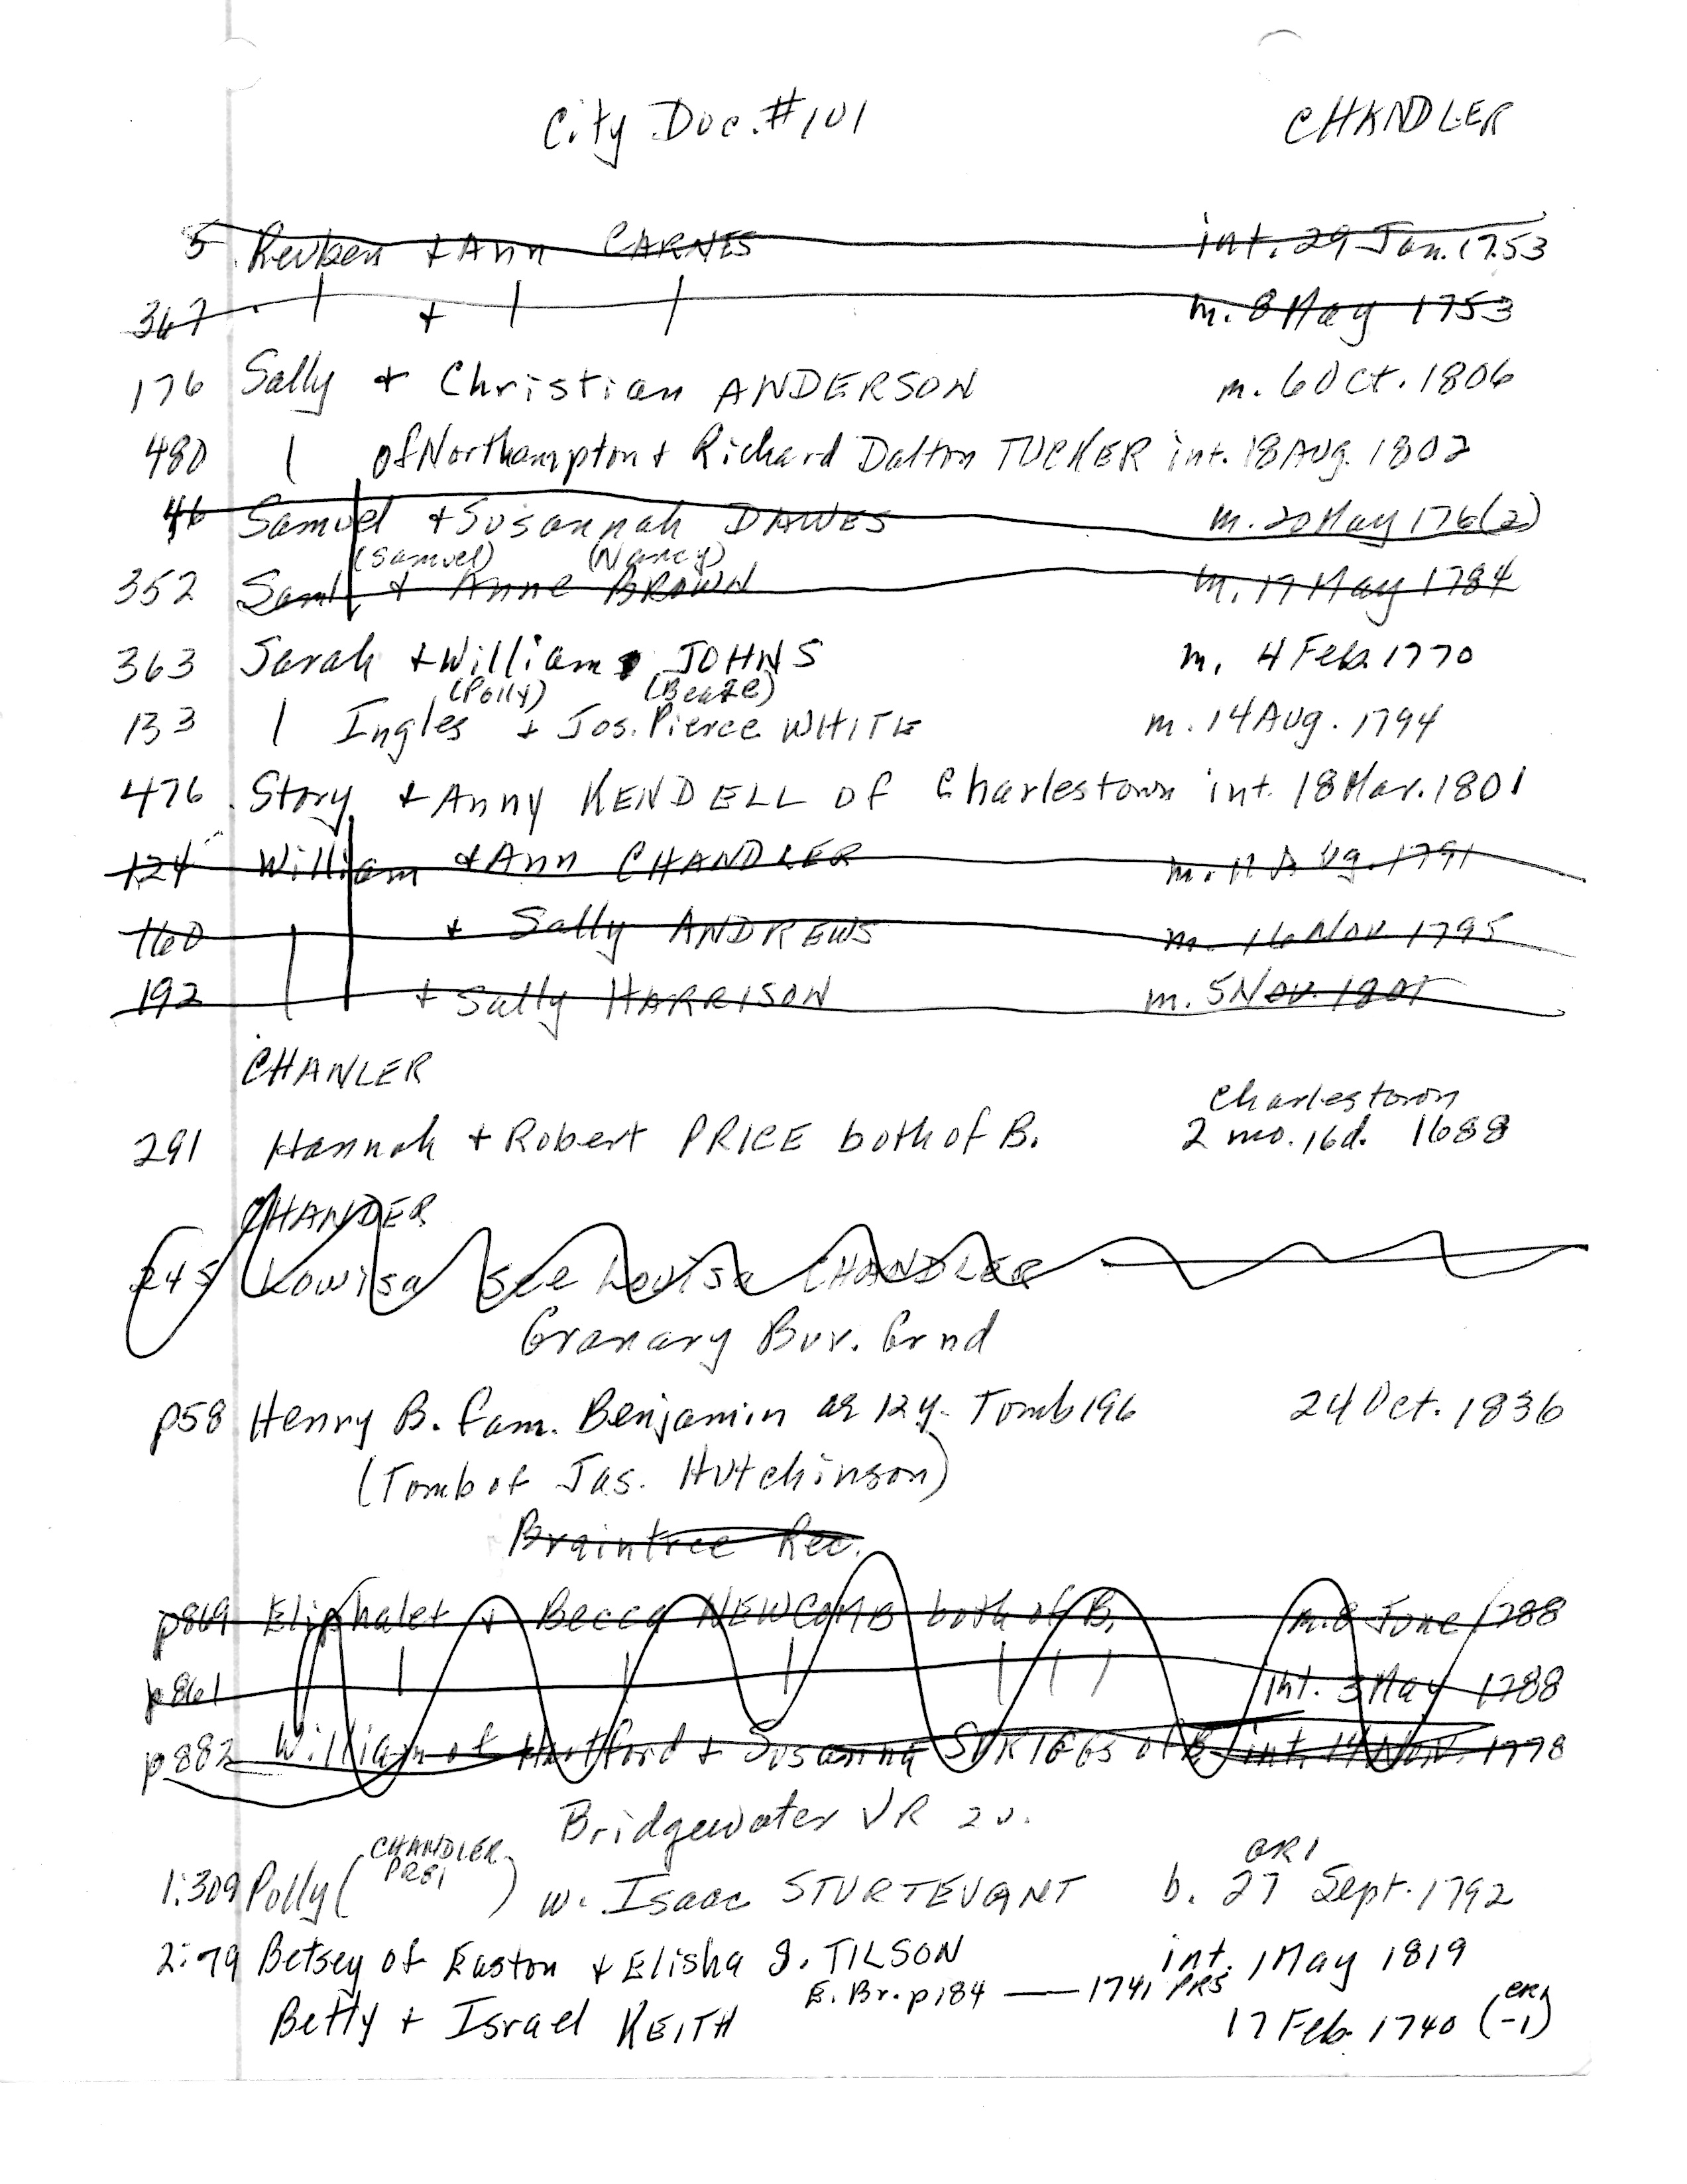 City Doc. #101 CHANDLER
5 Reuben + Ann CARNES int. 29 Jan. 1753
367 | + | | m. 8 May 1753
176 Sally + Christian ANDERSON m. 6 Oct. 1806
480 | of Northampton + Richard Dalton TUCKER int. 18 Aug. 1802
46 Samuel + Susannah DAWES m. 20 May 176(2)
(Samuel) (Nancy)
352 Saml. + Anne BROWN m. 17 May 1784
363 Sarah + William JOHNS m. 4 Feb. 1770
(Polly) (Beaze)
133 | Ingles + Jos. Pierce WHITE m. 14 Aug. 1794
476 Story + Anny KENDELL of Charlestown int. 18 Mar. 1801
124 William + Ann CHANDLER m. 11 Aug. 1791
160 | + Sally ANDREWS m. 16 Nov. 1795
192 | + Sally HARRISON m. 5 Nov. 1801
CHANLER
Charlestown
291 Hannah + Robert PRICE both of B. 2 mo. 16d. 1688
CHANDER
245 Lowisa see Louisa CHANDLER
Granary Bur. Grnd
p58 Henry B. fam. Benjamin ae 12 y. Tomb 196 24 Oct. 1836
(Tomb of Jas. Hutchinson)
Braintree Rec.
p869 Eliphalet + Becca NEWCOMB both of B. m. 8 June 1788
p861 | | | | | | int. 3 May 1788
p882 William of Hartford + Susanna of B. int. 14 Nov. 1778
Bridgewater VR 2v.
CHANDLER GR1
1:309 Polly ( PR81 ) w. Isaac STURTEVANT b. 27 Sept. 1792
2:79 Betsey of Easton + Elisha S. TILSON int. 1 May 1819
E. Br. p184 — 1741 PR5
Betty + Israel KEITH 17 Feb. 1740 (-1)